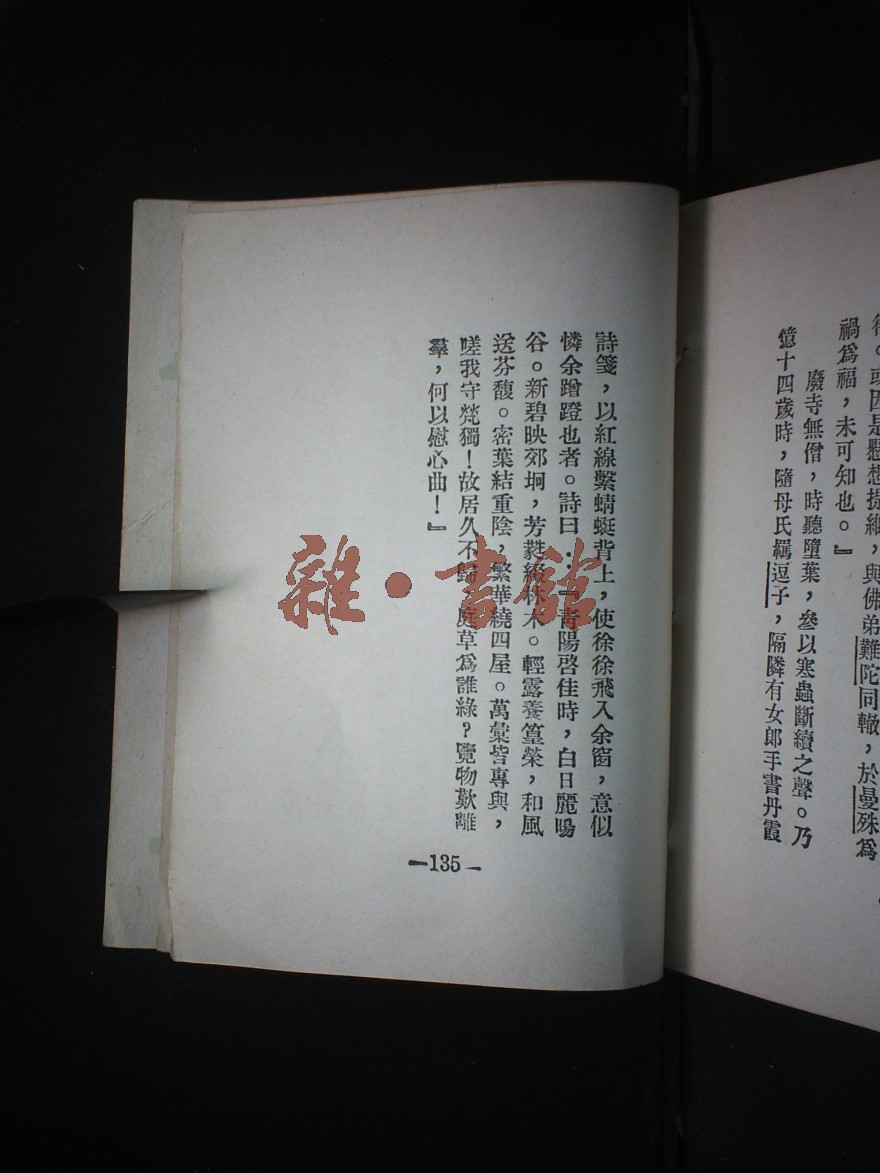 禍爲福，未可知也。』
廢寺無僧，時聽墮葉，參以寒蟲斷續之聲。乃
憶十四歲時，隨母氏羈逗子，隔隣有女郎手書丹霞
詩箋，以紅線繫蜻蜓背上，使徐徐飛入余窗，意似
憐余蹭蹬也者。詩曰：『靑陽啓佳時，白日麗暘
谷。新碧映郊坰，芳蕤綴林木。輕露養篁榮，和風
送芬馥。密葉結重陰，繁華繞四屋。萬彙皆專與，
嗟我守煢獨！故居久不歸，庭草爲誰綠？覽物歎離
羣，何以慰心曲！』
—135—
雜·書館